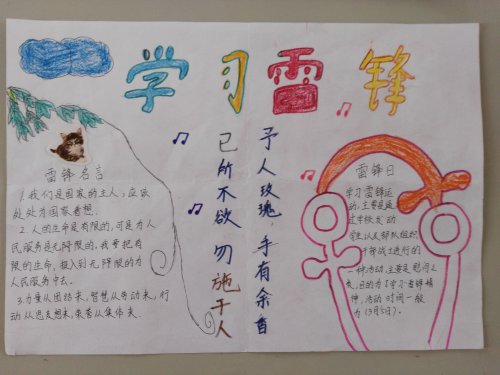 学习雷锋
雷锋名言
1.我们是国家的主人，应该
处处为国家着想.
2.人的生命是有限的，可是为人
民服务是无限的，我要把有
限的生命，投入到无限的为
人民服务中去.
3.力量从团结来，智慧从劳动来，行
动从思想来，荣誉从集体来.
己所不欲勿施于人
予人玫瑰，手有余香
雷锋日
学习雷锋运
动，主要是通
过学校发动
学生以及部队组织
干部战士进行的
一种活动.主要是
来，目的为了学习雷锋精
神，活动时间一般
为(3月5日).